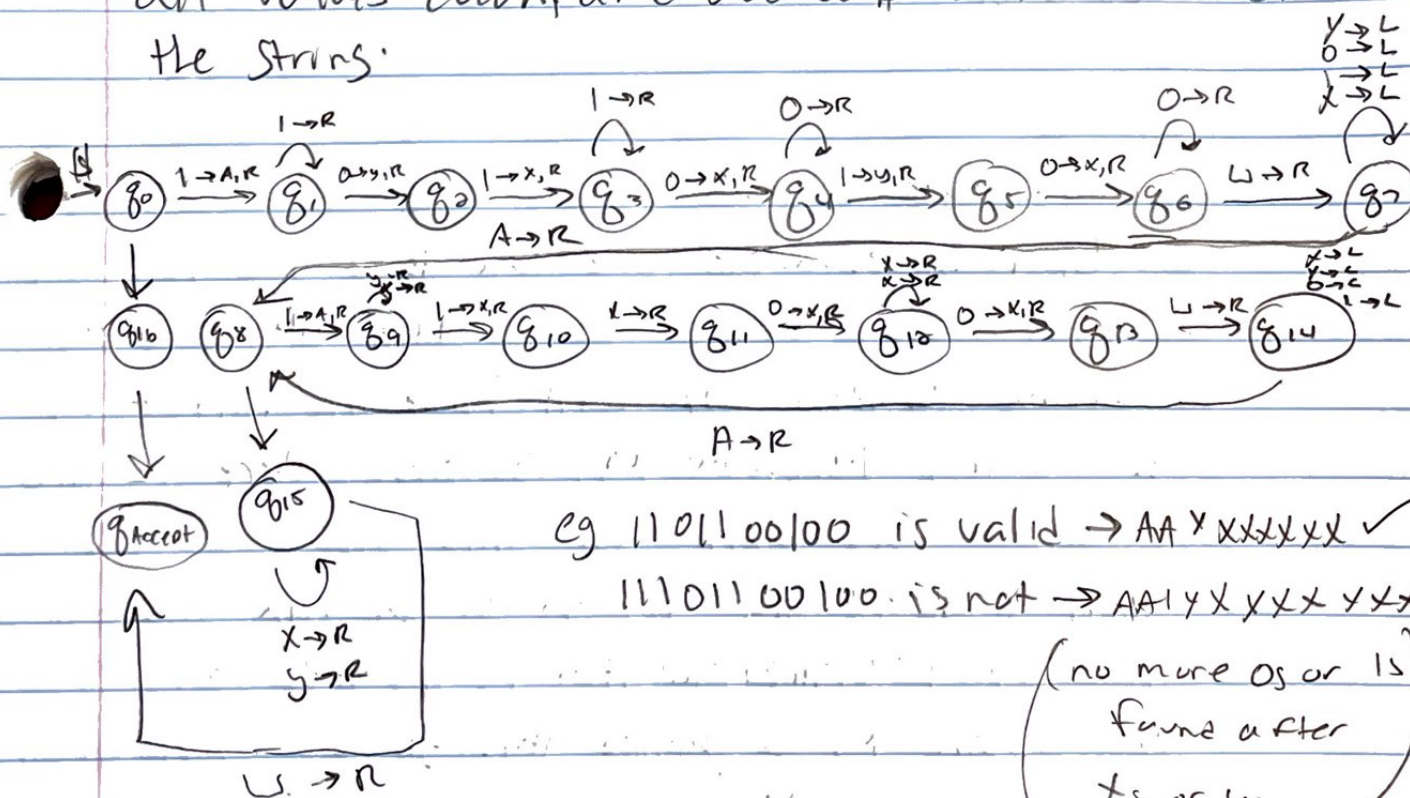 the string.
1→R 1→R 0→R 0→R
y→L
0→L
1→L
x→L
q0 1→A,R q1 0→y,R q2 1→x,R q3 0→x,R q4 1→y,R q5 0→x,R q6 ⊔→R q7
A→R
y→R
x→R
x→R
x→R
x→L
y→L
0→L
1→L
q16 q8 1→A,R q9 1→x,R q10 x→R q11 0→x,R q12 0→x,R q13 ⊔→R q14
A→R
qAccept q15
x→R
y→R
⊔→R
eg 1101100100 is valid → AAYXXXXXX ✓
11101100100. is not → AA1YXYXXYXX
(no more 0s or 1s
found after